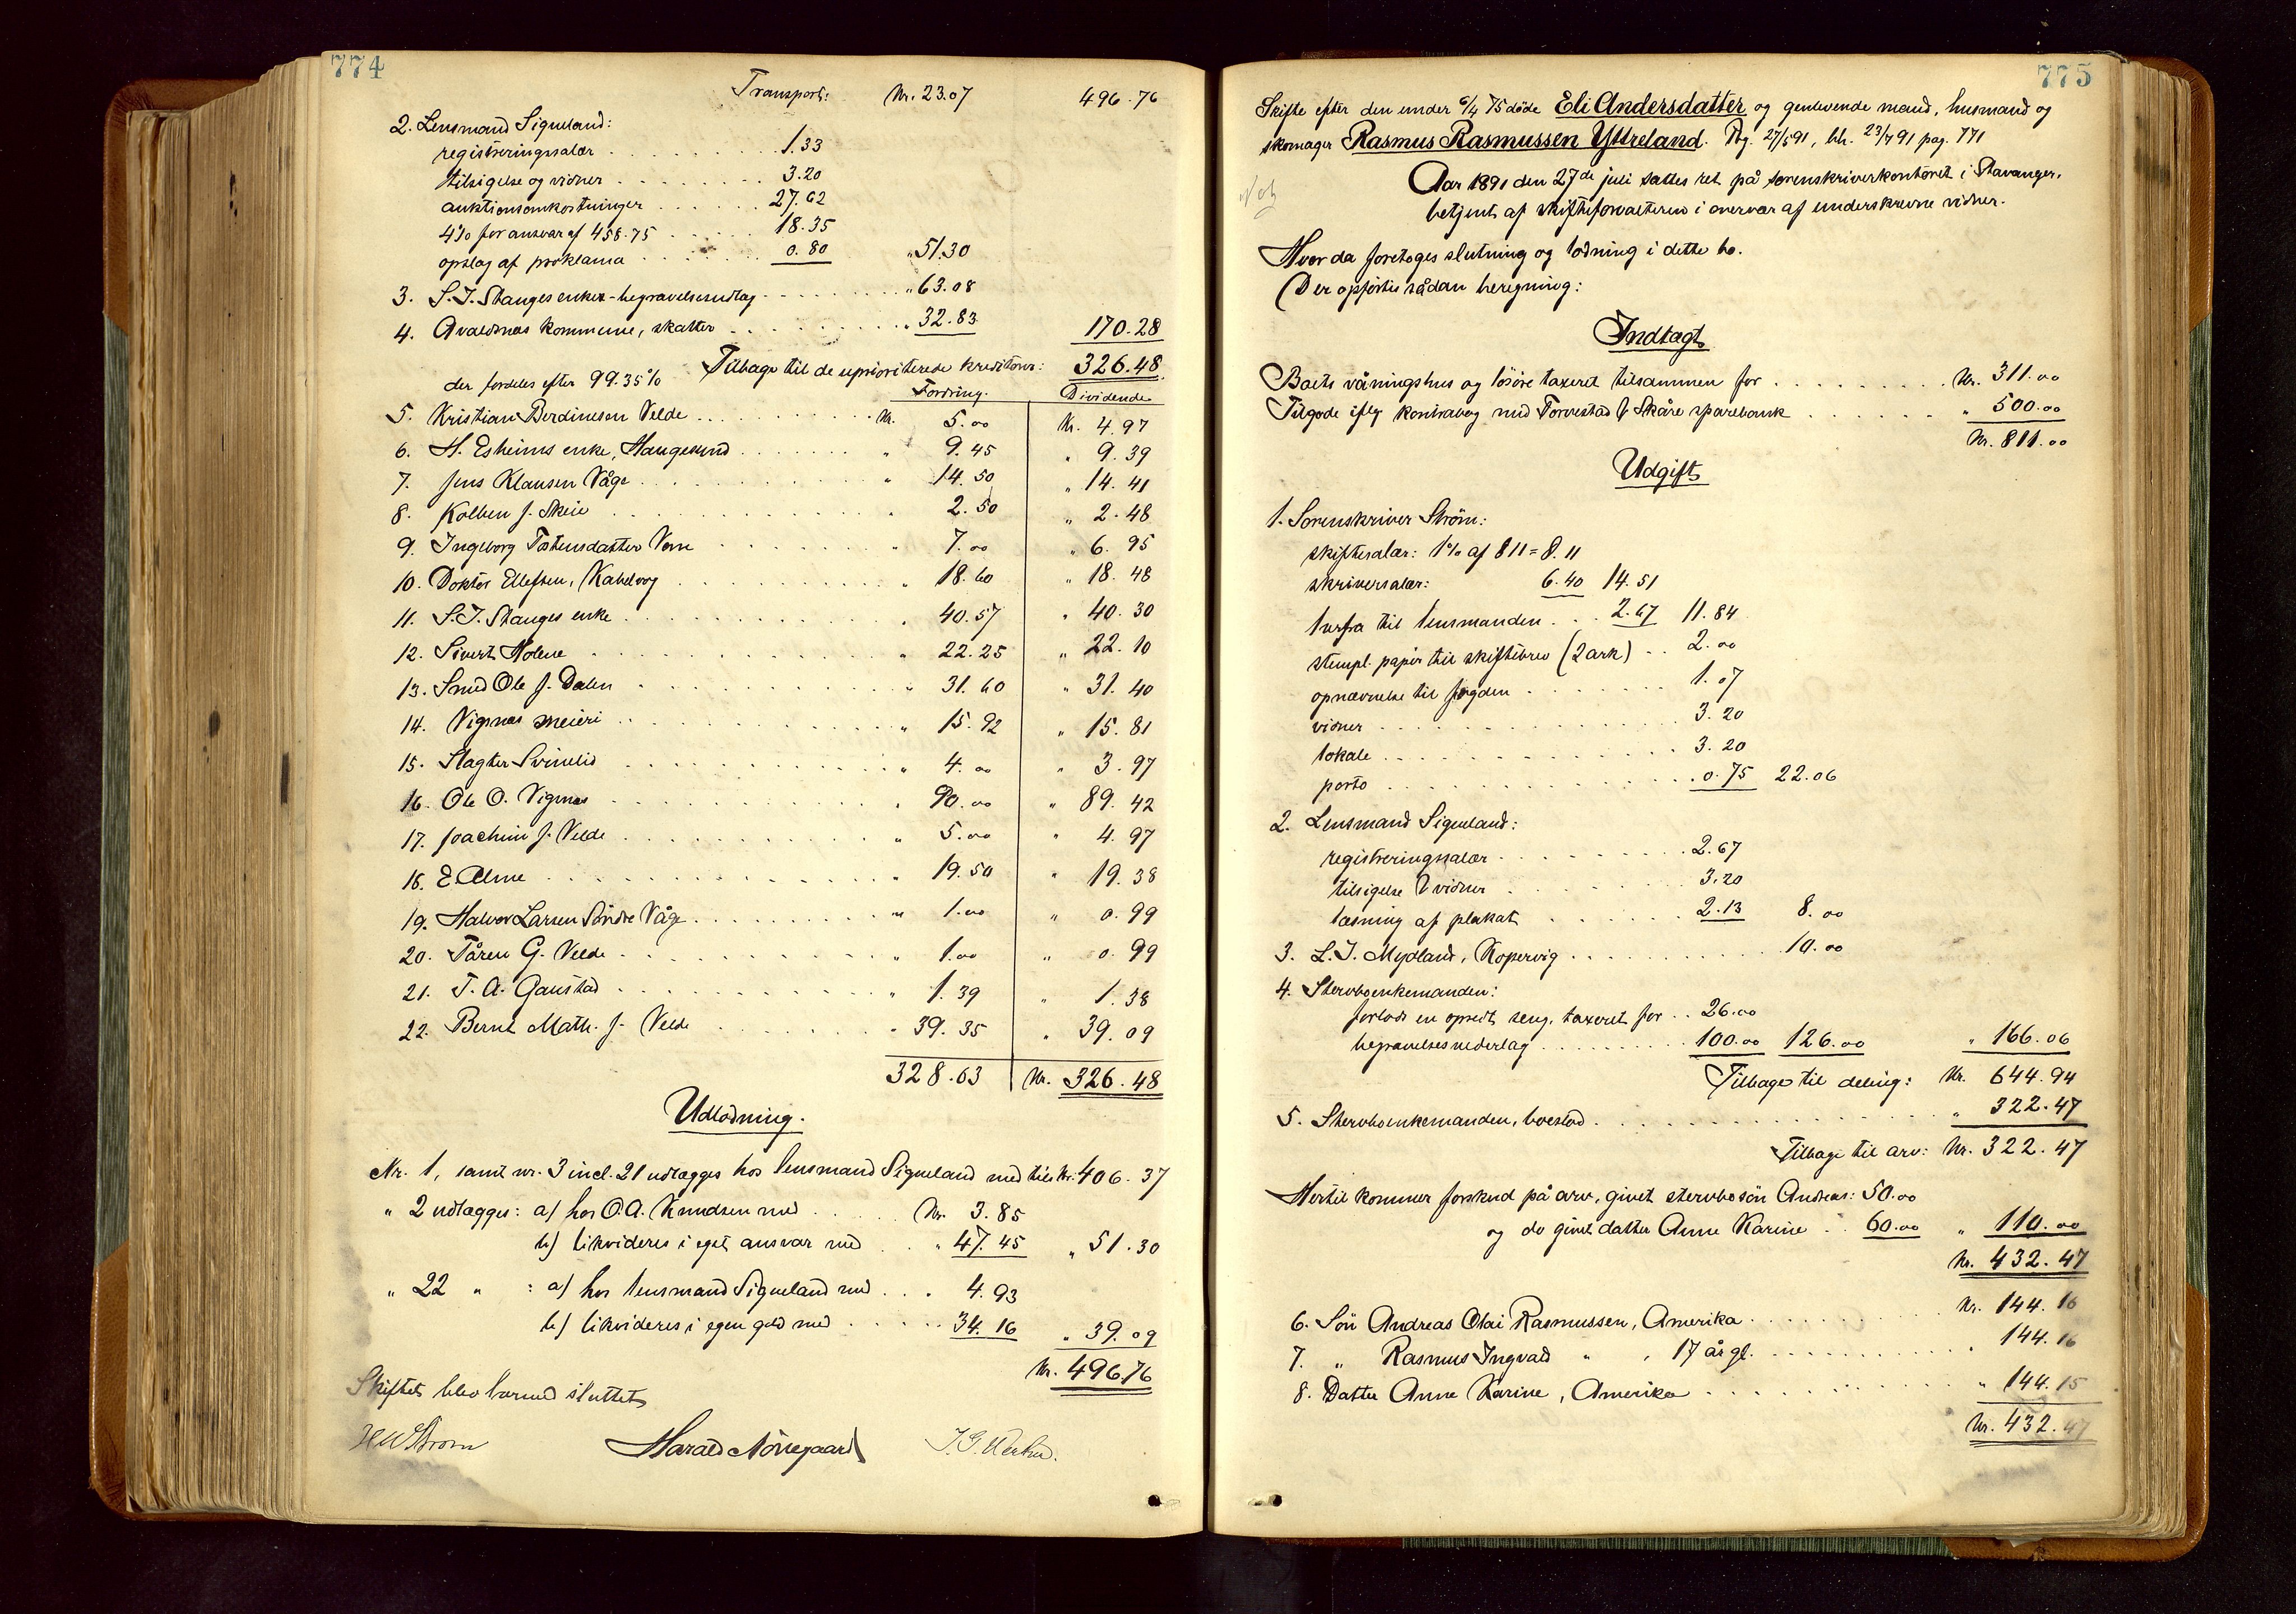 774
Transport: Kr. 23.07 496.76
2. Lensmand Signeland:
registreringssalær 1.33
tilsigelse og vidner 3.20
auktionsomkostninger 27.62
4% for ansvar af 458.75 18.35
opslag af proklama 0.80 " 51.30
3. S. I. Stanges enke - begravelsesudlæg " 63.08
4. Avaldsnes kommune, skatter " 32.83 170.28
Tilbage til de uprioriterede kreditorer: 326.48
der fordeles efter 99.35%
Fordring. Dividende
5. Kristian Berdinesen Velde Kr. 5.00 Kr. 4.97
6. H. Esheims enke, Haugesund " 9.45 " 9.39
7. Jens Klausen Våge " 14.50 " 14.41
8. Kolben J. Skeie " 2.50 " 2.48
9. Ingeborg Tostensdatter Vorre " 7.00 " 6.95
10. Doktor Ellefsen, Kabelvog " 18.60 " 18.48
11. S. I. Stanges enke " 40.57 " 40.30
12. Sivert Holene " 22.25 " 22.10
13. Smed Ole J. Dalen " 31.60 " 31.40
14. Vignes meieri " 15.92 " 15.81
15. Slagter Svinelid " 4.00 " 3.97
16. Ole O. Vignes " 90.00 " 89.42
17. Joachim J. Velde " 5.00 " 4.97
18. E. Alme " 19.50 " 19.38
19. Halvor Larsen Søndre Våge " 1.00 " 0.99
20. Tåren G. Velde " 1.00 " 0.99
21. T. A. Gaustad " 1.39 " 1.38
22. Bernt Math. J. Velde " 39.35 " 39.09
328.63 Kr. 326.48
Udlodning.
Nr. 1, samt nr. 3 incl. 21 udlægges hos lensmand Signeland med tils. Kr. 406.37
" 2 udlægges: a) hos O. A. Knudsen med Kr. 3.85
b) likvideres i eget ansvar med " 47.45 " 51.30
" 22 " : a) hos lensmand Signeland med " 4.93
b) likvideres i egen gjeld med 34.16 " 39.09
Kr. 496.76
Skiftet blev hermed sluttet
Harald Nörregaard
775
Skifte efter den under 6/4 75 døde Eli Andersdatter og genlevende mand, husmand og
skomager Rasmus Rasmussen Yttreland. Reg. 27/5 91, beh. 23/7 91 pag. 771
Aar 1891 den 27de juli sattes ret på sorenskriverkontoret i Stavanger,
betjent af skifteforvalteren i overvær af underskrevne vidner.
Hvor da foretoges slutning og lodning i dette bo.
Der opførtes sådan beregning:
Indtægt
Boets våningshus og løsøre taxeret tilsammen for Kr. 311.00
Tilgode iflg. kontrabog med Torvestad & Skåre sparebank " 500.00
Kr. 811.00
Udgift
1. Sorenskriver Strøm:
skiftesalær: 1% af 811 = 8.11
skriversalær: 6.40 14.51
herfra til lensmanden 2.67 11.84
stempl. papir til skiftebrev (2 ark) 2.00
opnævnelse til fogden 1.07
vidner 3.20
lokale 3.20
porto 0.75 22.06
2. Lensmand Signeland:
registreringssalær 2.67
tilsigelse & vidner 3.20
læsning af plakat 2.13 8.00
3. L. I. Mydland, Kopervig 10.00
4. Stervboenkemanden:
forlods en opredt seng, taxeret for 26.00
begravelsesvederlag 100.00 126.00 " 166.06
Tilbage til deling: Kr. 644.94
5. Stervboenkemanden, boeslod " 322.47
Tilbage til arv: Kr. 322.47
Hertil kommer forskud på arv, givet stervbosøn Andreas: 50.00
og do givet datter Anne Karine 60.00 " 110.00
Kr. 432.47
6. Søn Andreas Olai Rasmussen, Amerika Kr. 144.16
7. " Rasmus Ingvald " , 17 år gl. " 144.16
8. Datter Anne Karine, Amerika " 144.15
Kr. 432.47